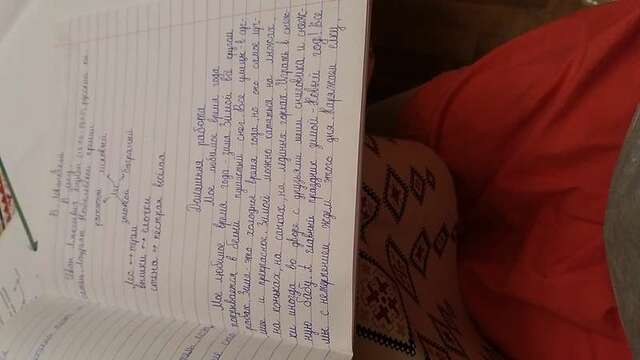 В лесу
Иван Алексеевич Бунин русский пи-
сатель Лауреат Нобелевской премии
расписной лиловый
Лес
золотой багряный
Лес ↔ терем
вышки ↔ ёлочки
стена ↔ пестрая весёлая
Домашняя работа
Мое любимое время года
Мое любимое время года - зима. Зимой всё кругом
покрывается в белый пушистый снег. Все улицы в суг-
робах. Зима - это холодное время года, но оно самое луч-
шее и прекрасное. Зимой можно кататься на лыжах,
на коньках, на санках, на ледяных горках. Играть в снеж-
ки иногда во дворе с друзьями лепим снеговика и снеж-
ную бабу. А главный праздник зимой - Новый год! Все
мы с нетерпением ждем этого дня. Наряжаем елку,